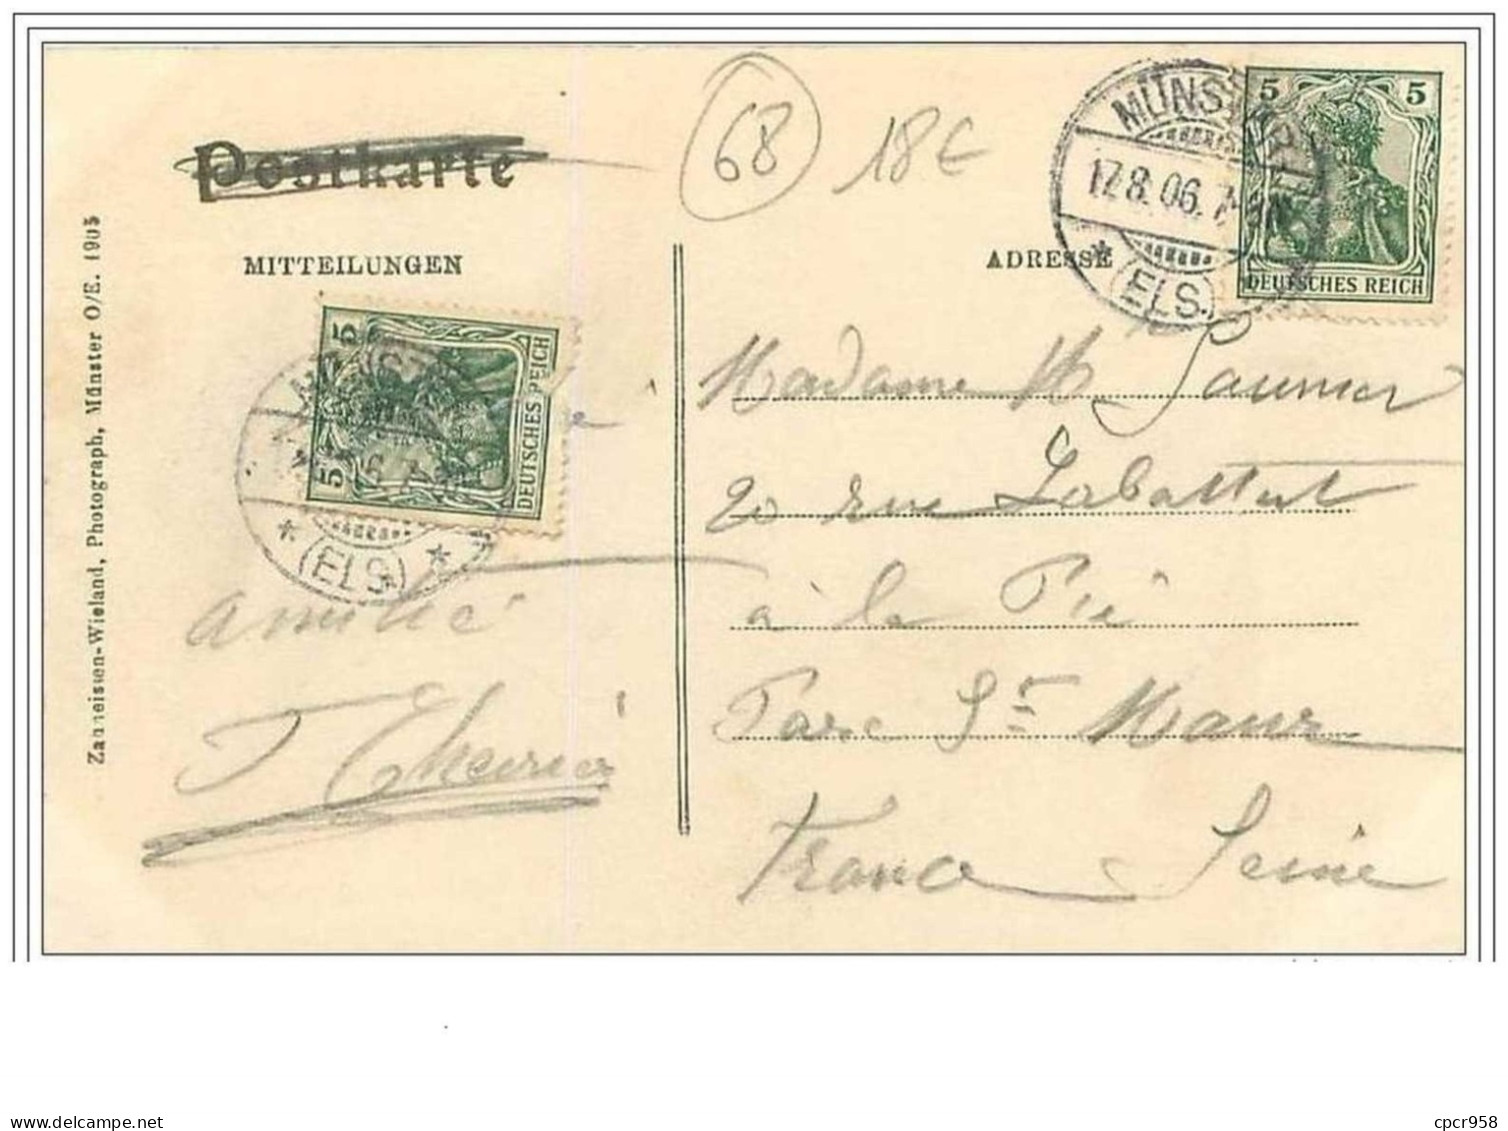 Postkarte
68
18€
MÜNSTER
17.8.06.7-8N
(ELS.)
5 5
DEUTSCHES REICH
MITTEILUNGEN
ADRESSE
5 5
DEUTSCHES REICH
(ELS.)
Zanneissen-Wieland, Photograph, Münster O/E. 1905
amitié
Madame
20 rue Labattut
à la Pie
Parc St Maur
France Seine
www.delcampe.net
cpcr958